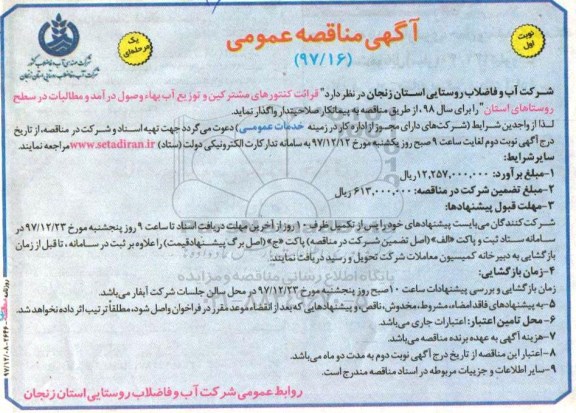 آگهی مناقصه عمومی
(۹۷/۱۶)
نوبت اول
یک مرحله‌ای
شرکت آب و فاضلاب روستایی استان زنجان در نظر دارد "قرائت کنتورهای مشترکین و توزیع آب بهاء وصول درآمد و مطالبات در سطح
روستاهای استان" را برای سال ۹۸، از طریق مناقصه به پیمانکار صلاحیتدار واگذار نماید.
لذا از واجدین شرایط (شرکت‌های دارای مجوز از اداره کار در زمینه خدمات عمومی) دعوت می‌گردد جهت تهیه اسناد و شرکت در مناقصه، از تاریخ
درج آگهی نوبت دوم لغایت ساعت ۹ صبح روز یکشنبه مورخ ۹۷/۱۲/۱۲ به سامانه تدارکات الکترونیکی دولت (ستاد) www.setadiran.ir مراجعه نمایند.
سایر شرایط:
۱-مبلغ برآورد: ۱۲,۲۵۷,۰۰۰,۰۰۰ ریال
۲-مبلغ تضمین شرکت در مناقصه: ۶۱۳,۰۰۰,۰۰۰ ریال
۳-مهلت قبول پیشنهادها:
شرکت کنندگان می‌بایست پیشنهادهای خود را پس از تکمیل ظرف ۱۰ روز از آخرین مهلت دریافت اسناد تا ساعت ۹ روز پنجشنبه مورخ ۹۷/۱۲/۲۳ در
سامانه ستاد ثبت و پاکت «الف» (اصل تضمین شرکت در مناقصه) پاکت «ج» (اصل برگ پیشنهاد قیمت) را علاوه بر ثبت در سامانه، تا قبل از زمان
بازگشایی به دبیرخانه کمیسیون معاملات شرکت تحویل و رسید دریافت نمایند.
۴-زمان بازگشایی:
زمان بازگشایی و بررسی پیشنهادات ساعت ۱۰ صبح روز پنجشنبه مورخ ۹۷/۱۲/۲۳ در محل سالن جلسات شرکت آبفار می‌باشد.
۵-به پیشنهادهای فاقد امضاء، مشروط، مخدوش، ناقص و پیشنهادهایی که بعد از انقضاء موعد مقرر در فراخوان واصل شود، مطلقاً ترتیب اثر داده نخواهد شد.
۶- محل تامین اعتبار: اعتبارات جاری می‌باشد.
۷-هزینه آگهی به عهده برنده مناقصه می‌باشد.
۸-اعتبار این مناقصه از تاریخ درج آگهی نوبت دوم به مدت دو ماه می‌باشد.
۹-سایر اطلاعات و جزییات مربوطه در اسناد مناقصه مندرج است.
روابط عمومی شرکت آب و فاضلاب روستایی استان زنجان
پایگاه اطلاع رسانی مناقصه و مزایده